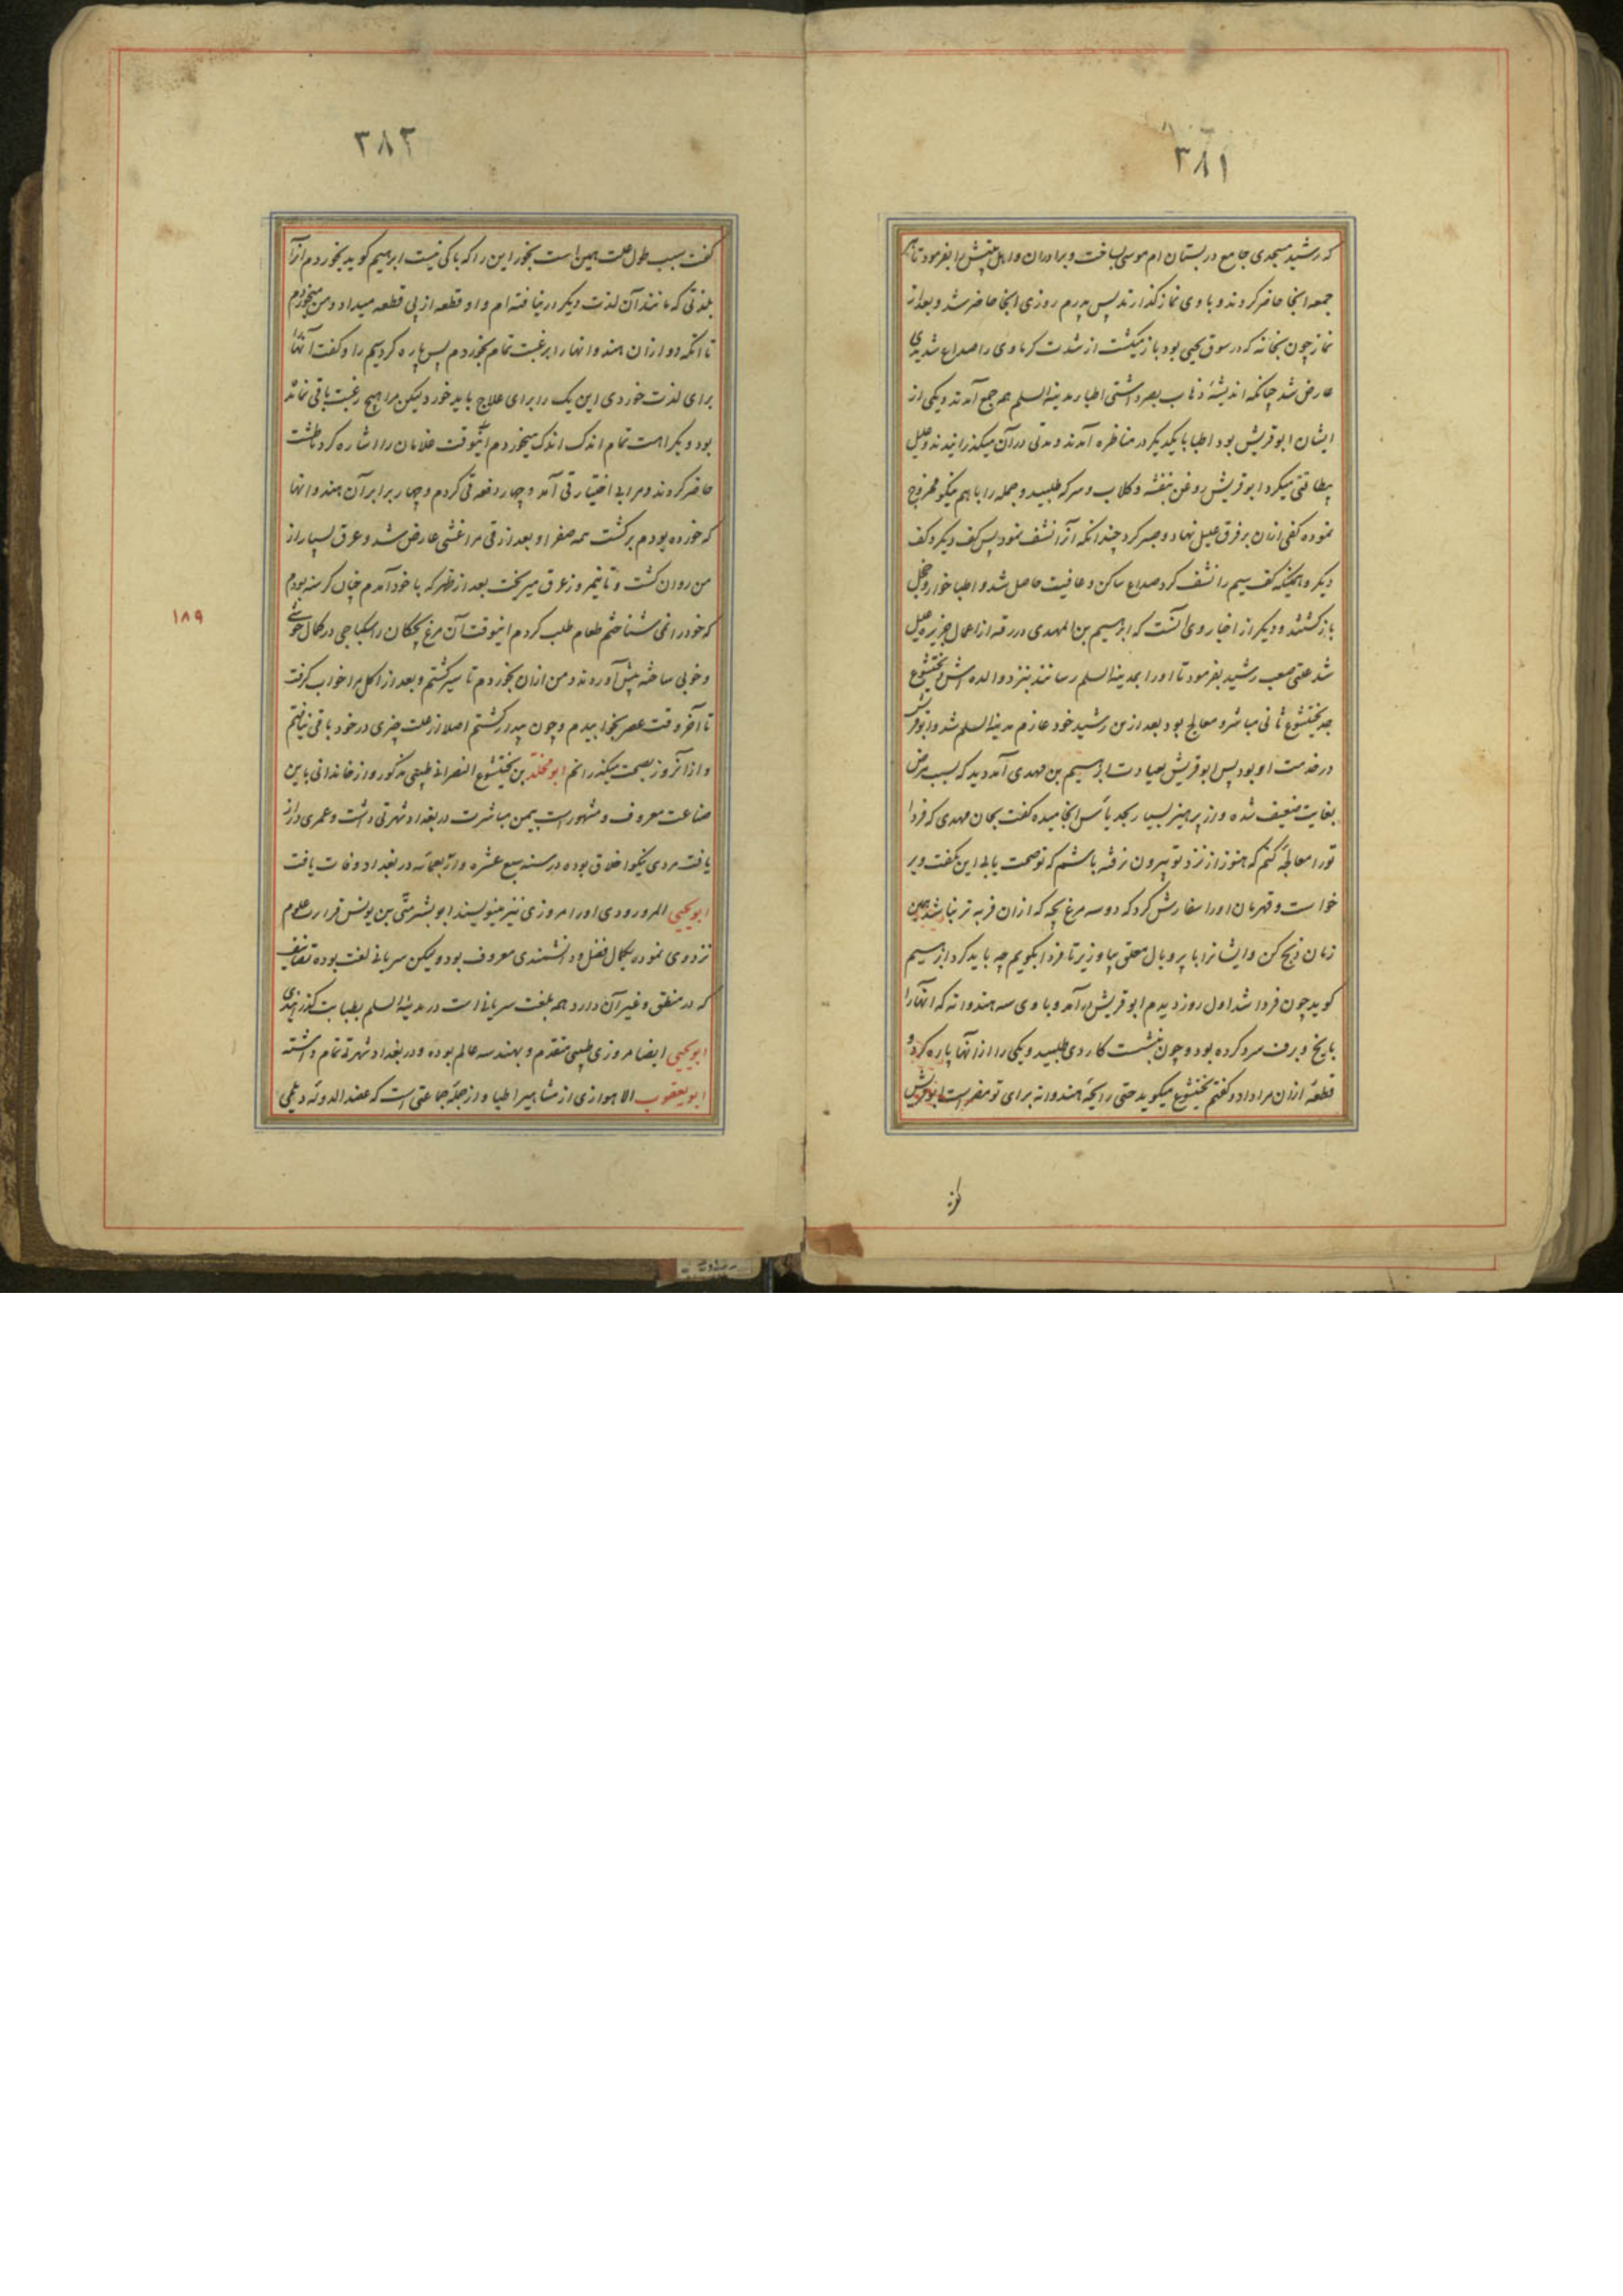 ۳۸۱
که رشید مسجدی جامع در بستان ام موسی بساخت و برادران و اهل بیتش را بفرمود تا هر
جمعه انجا حاضر کردند و با وی نماز کذارند پس پدرم روزی انجا حاضر شد و بعد از
نماز چون بخانه که در سوق یحیی بود باز میکشت از شدت کرما وی را صداع شدیدی
عارض شد چنانکه اندیشهٔ ذهاب بصر داشتی اطبا مدینة السلم همه جمع آمدند و یکی از
ایشان ابو قریش بود اطبا با یکدیکر در مناظره آمدند و مدتی در آن میکذرانیدند و علیل
بیطاقتی میکرد ابو قریش روغن بنفشه و کلاب و سرکه طلبید و جمله را با هم نیکو ممزوج
نموده کفی ازان بر فرق علیل نهاد و صبر کرد چندانکه آنرا نشف نمود پس کف دیکر و کف
دیکر و همینکه کف سیم را نشف کرد صداع ساکن و عافیت حاصل شد و اطبا خوار و خجل
باز کشتند و دیکر از اخبار وی آنست که ابرهیم بن المهدی در رقه از اعمال جزیره علیل
شد علتی صعب رشید بفرمود تا او را بمدینة السلم رسانند بنزد والده اش و بختیشوع
جد بختیشوع ثانی مباشر و معالج بود بعد ازین رشید خود عازم مدینة السلم شد و ابو قریش
در خدمت او بود پس ابو قریش بعیادت ابرهیم بن مهدی آمد دید که بسبب مرض
بغایت ضعیف شده و از پرهیز بسیار بحد یأس انجامیده کفت بجان مهدی که فردا
تو را معالجه کنم که هنوز از نزد تو بیرون نرفته باشم که تو صحت یابی این بکفت و بر
خواست و قهرمان او را سفارش کرد که دو سه مرغ بچه که ازان فربه تر نباشد همین
زمان ذبح کن و ایشانرا با پر و بال معلق بیاویز تا فردا بکویم چه باید کرد ابرهیم
کوید چون فردا شد اول روز دیدم ابو قریش در آمد و با وی سه هندوانه که انها را
با یخ و برف سرد کرده بود و چون بنشست کاردی طلبید و یکی را از انها پاره کرد و
قطعهٔ ازان مرا داد و کفتم بختیشوع میکوید حتی رایحهٔ هندوانه برای تو مضر است ابو قریش
۳۸۲
کفت سبب طول علت همین است بخور این را که باکی نیست ابرهیم کوید بخوردم آنرا
بلذتی که مانند آن لذت دیکر در نیافته ام و او قطعه از پی قطعه میداد و من میخوردم
تا آنکه دو ازان هندوانها را برغبت تمام بخوردم پس پاره کرد سیم را و کفت انها
برای لذت خوردی این یک را برای علاج باید خورد لیکن مرا هیچ رغبت باقی نمانده
بود و بکراهت تمام اندک اندک میخوردم اینوقت غلامان را اشاره کرد تا طشت
حاضر کردند و مرا بی اختیار قی آمد و چهار دفعه قی کردم و چهار برابر آن هندوانها
که خورده بودم برکشت همه صفرا و بعد از قی مرا غشی عارض شد و عرق بسیار از
من روان کشت و تا نیمروز عرق میریخت بعد از ظهر که با خود آمدم چنان کرسنه بودم
که خود را نمی شناختم طعام طلب کردم اینوقت آن مرغ بچکان را سکباجی در کمال خوشی
و خوبی ساخته پیش آوردند و من ازان بخوردم تا سیر کشتم و بعد از اکل مرا خواب کرفت
تا آخر وقت عصر بخوابیدم و چون بیدار کشتم اصلا از علت چیزی در خود باقی نیافتم
و از انروز بصحت میکذرانم ابو مخلد بن بختیشوع النصرانی طبیبی مذکور و از خاندانی باین
صناعت معروف و مشهور است بیمن مباشرت در بغداد شهرتی داشت و عمری دراز
یافت مردی نیکو اخلاق بوده در سنه سبع عشره و اربعمائه در بغداد وفات یافت
ابو یحیی المرورودی او را مروزی نیز مینویسند ابو بشر متی بن یونس قراءت علوم
نزد وی نموده بکمال فضل و دانشمندی معروف بود و لیکن سریانی لغت بوده تصانیف
که در منطق و غیر آن دارد همه بلغت سریانی است در مدینة السلم بطبابت کذرانیدی
ابو یحیی ایضا مروزی طبیبی متقدم و بهندسه عالم بوده و در بغداد شهرتی تمام داشته
ابو یعقوب الاهوازی از مشاهیر اطبا و از جمله جماعتی است که عضد الدوله دیلمی
۱۸۹